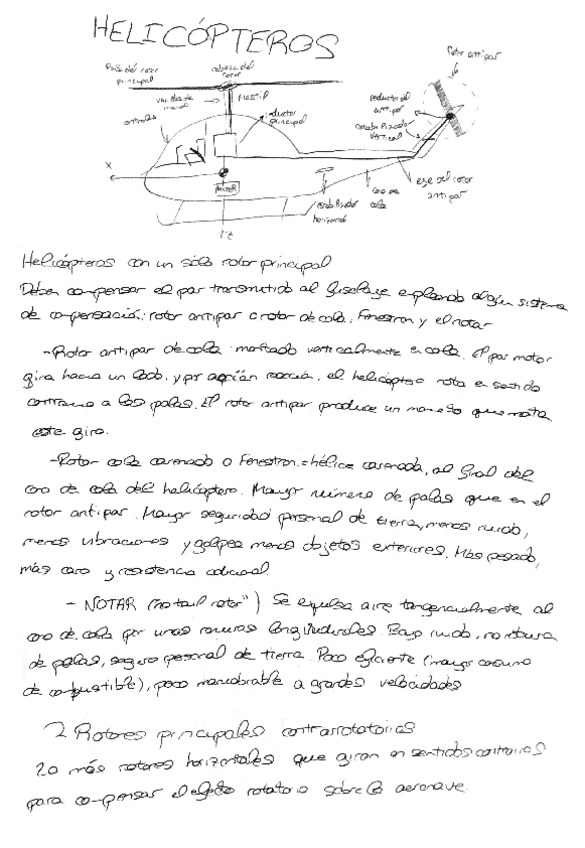 HELICÓPTEROS
Pala del rotor principal
cabeza del rotor
Rotor antipar
varillas de mando
MASTIL
reductor principal
controles
reductor del antipar
estabilizador vertical
X
MOTOR
eje del rotor antipar
cono de cola
estabilizador horizontal
Z
Helicópteros con un sólo rotor principal
Deben compensar el par transmitido al fuselaje empleando algún sistema
de compensación: rotor antipar o rotor de cola, Fenestron y el notar
-Rotor antipar de cola: montado verticalmente en cola. El par motor
gira hacia un lado, y por acción reacción, el helicóptero rota en sentido
contrario a las palas. El rotor antipar produce un que
este giro.
-Rotor cola carenado o Fenestron: hélice carenada, al final del
cono de cola del helicóptero. Mayor número de palas que en el
rotor antipar. Mayor seguridad personal de tierra, menos ruido,
menos vibraciones y golpea menos objetos exteriores. Más pesado,
más caro y resistencia adicional.
- NOTAR (no tail rotor") Se expulsa aire tangencialmente al
cono de cola por unas ranuras longitudinales. Bajo ruido, no
de palas, seguro personal de tierra. Poco eficiente (mayor consumo
de combustible), poco maniobrable a grandes velocidades
2 Rotores principales contrarrotatorios
2 o más rotores horizontales que giran en sentidos contrarios
para compensar el efecto rotatorio sobre la aeronave.